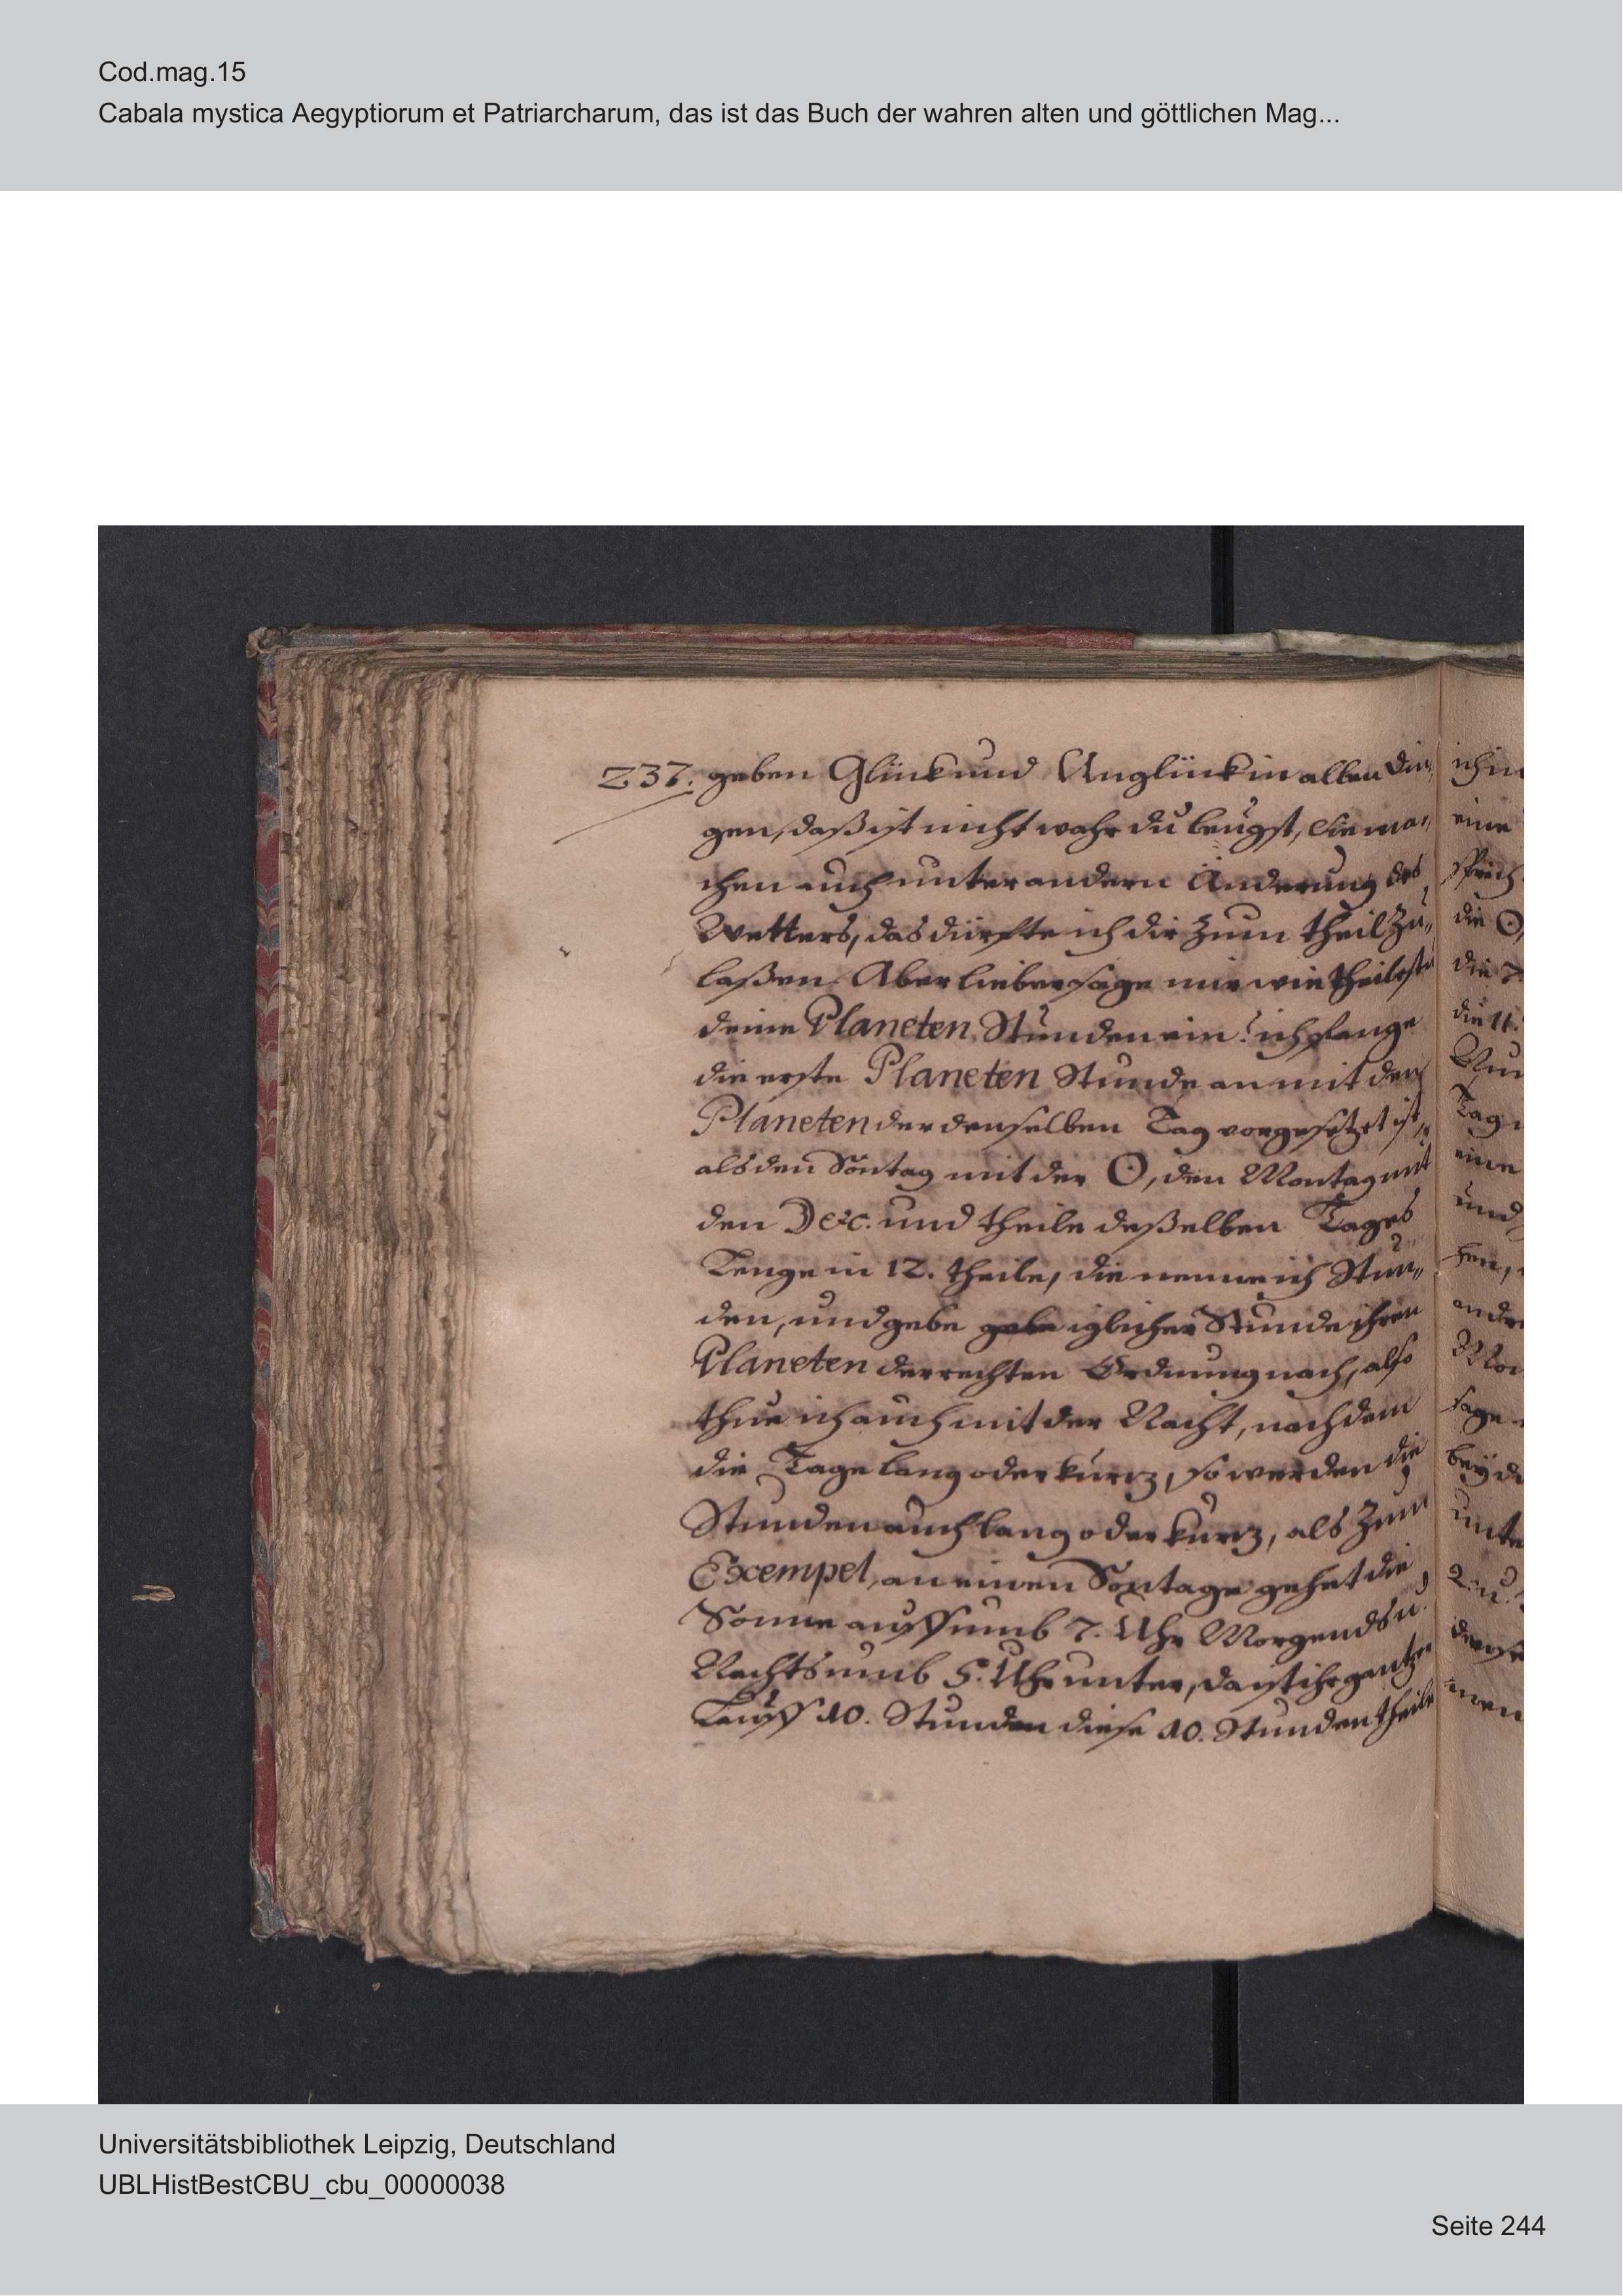 Cod.mag.15
Cabala mystica Aegyptiorum et Patriarcharum, das ist das Buch der wahren alten und göttlichen Mag...
237. geben Glück und Unglück in allen din„
gen, daß ist nicht wahr du leugst, sie ma„
chen auch unter andern Änderung des
Wetters, das dürfte ich dir zum theil zu„
laßen. Aber lieber sage mir wie theilestu
deine Planeten Stunden ein? ich fange
die erste Planeten Stunde an mit den
Planeten der denselben Tag vorgesetzet ist,
als den Sontag mit der ☉, den Montag mit
den ☽ &c. und theile deßelben Tages
Lenge in 12. theile, die nenne ich Stun„
den, und gebe iglicher Stunde ihren
Planeten der rechten Ordnung nach, also
thue ich auch mit der Nacht, nachdem
die Tage lang oder kurtz, so werden die
Stunden auch lang oder kurtz, als zum
Exempel, an einen Sontage gehet die
Sonne auff umb 7. Uhr Morgends u.
Nachts umb 5. Uhr unter, da ist ihr gantzer
Lauff 10. Stunden diese 10. Stunden theile
ich in
eine
sprich
die ☉,
die 7
die 11.
Nun
Tag
eine
und
hen,
andre
Mon
sage
bey de
unte
2. u.
nen
Universitätsbibliothek Leipzig, Deutschland
UBLHistBestCBU_cbu_00000038
Seite 244